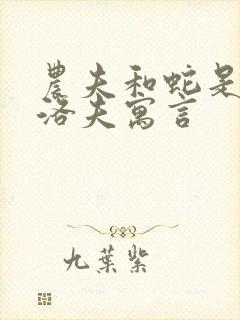 農夫和蛇是
洛夫寓言
九葉紫